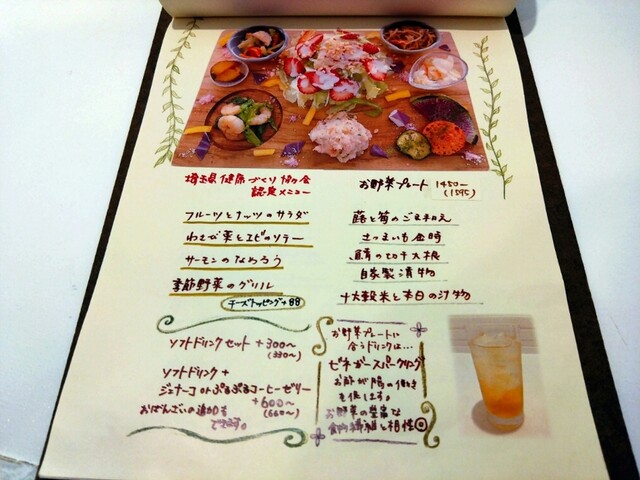 埼玉県健康づくり協力会
認定メニュー
お野菜プレート 1450ー
(1595)
フルーツとナッツのサラダ
わさび菜とエビのソテー
サーモンのなめろう
季節野菜のグリル
チーズトッピング+88
蕗と筍のごま和え
さつまいも金時
鯖の切干大根
自家製漬物
十六穀米と本日の汁物
ソフトドリンクセット +300〜
(330〜)
ソフトドリンク+
ジェラート or ぷるぷるコーヒーゼリー
+600〜
(660〜)
おばんざいの追加も
できます。
お野菜プレートに
合うドリンクは…
ビネガースパークリング
お酢が腸の働き
を促します。
お野菜の豊富な
食物繊維と相性◎